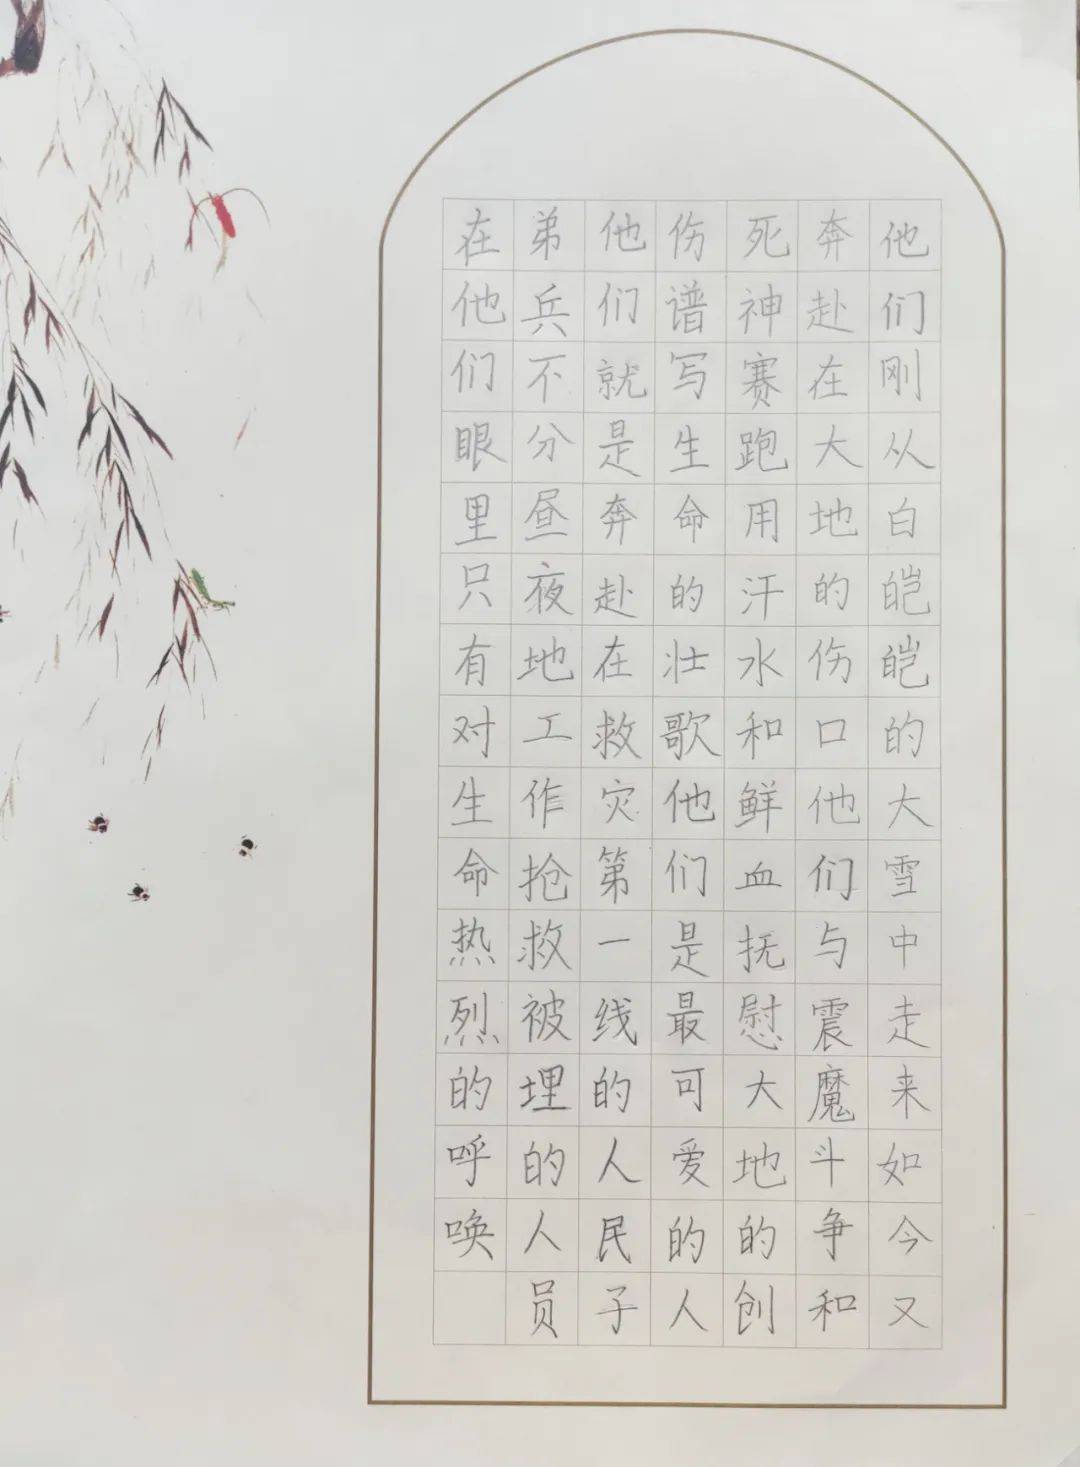 他们刚从白皑皑的大雪中走来如今又
奔赴在大地的伤口他们与震魔斗争和
死神赛跑用汗水和鲜血抚慰大地的创
伤谱写生命的壮歌他们是最可爱的人
他们就是奔赴在救灾第一线的人民子
弟兵不分昼夜地工作抢救被埋的人员
在他们眼里只有对生命热烈的呼唤